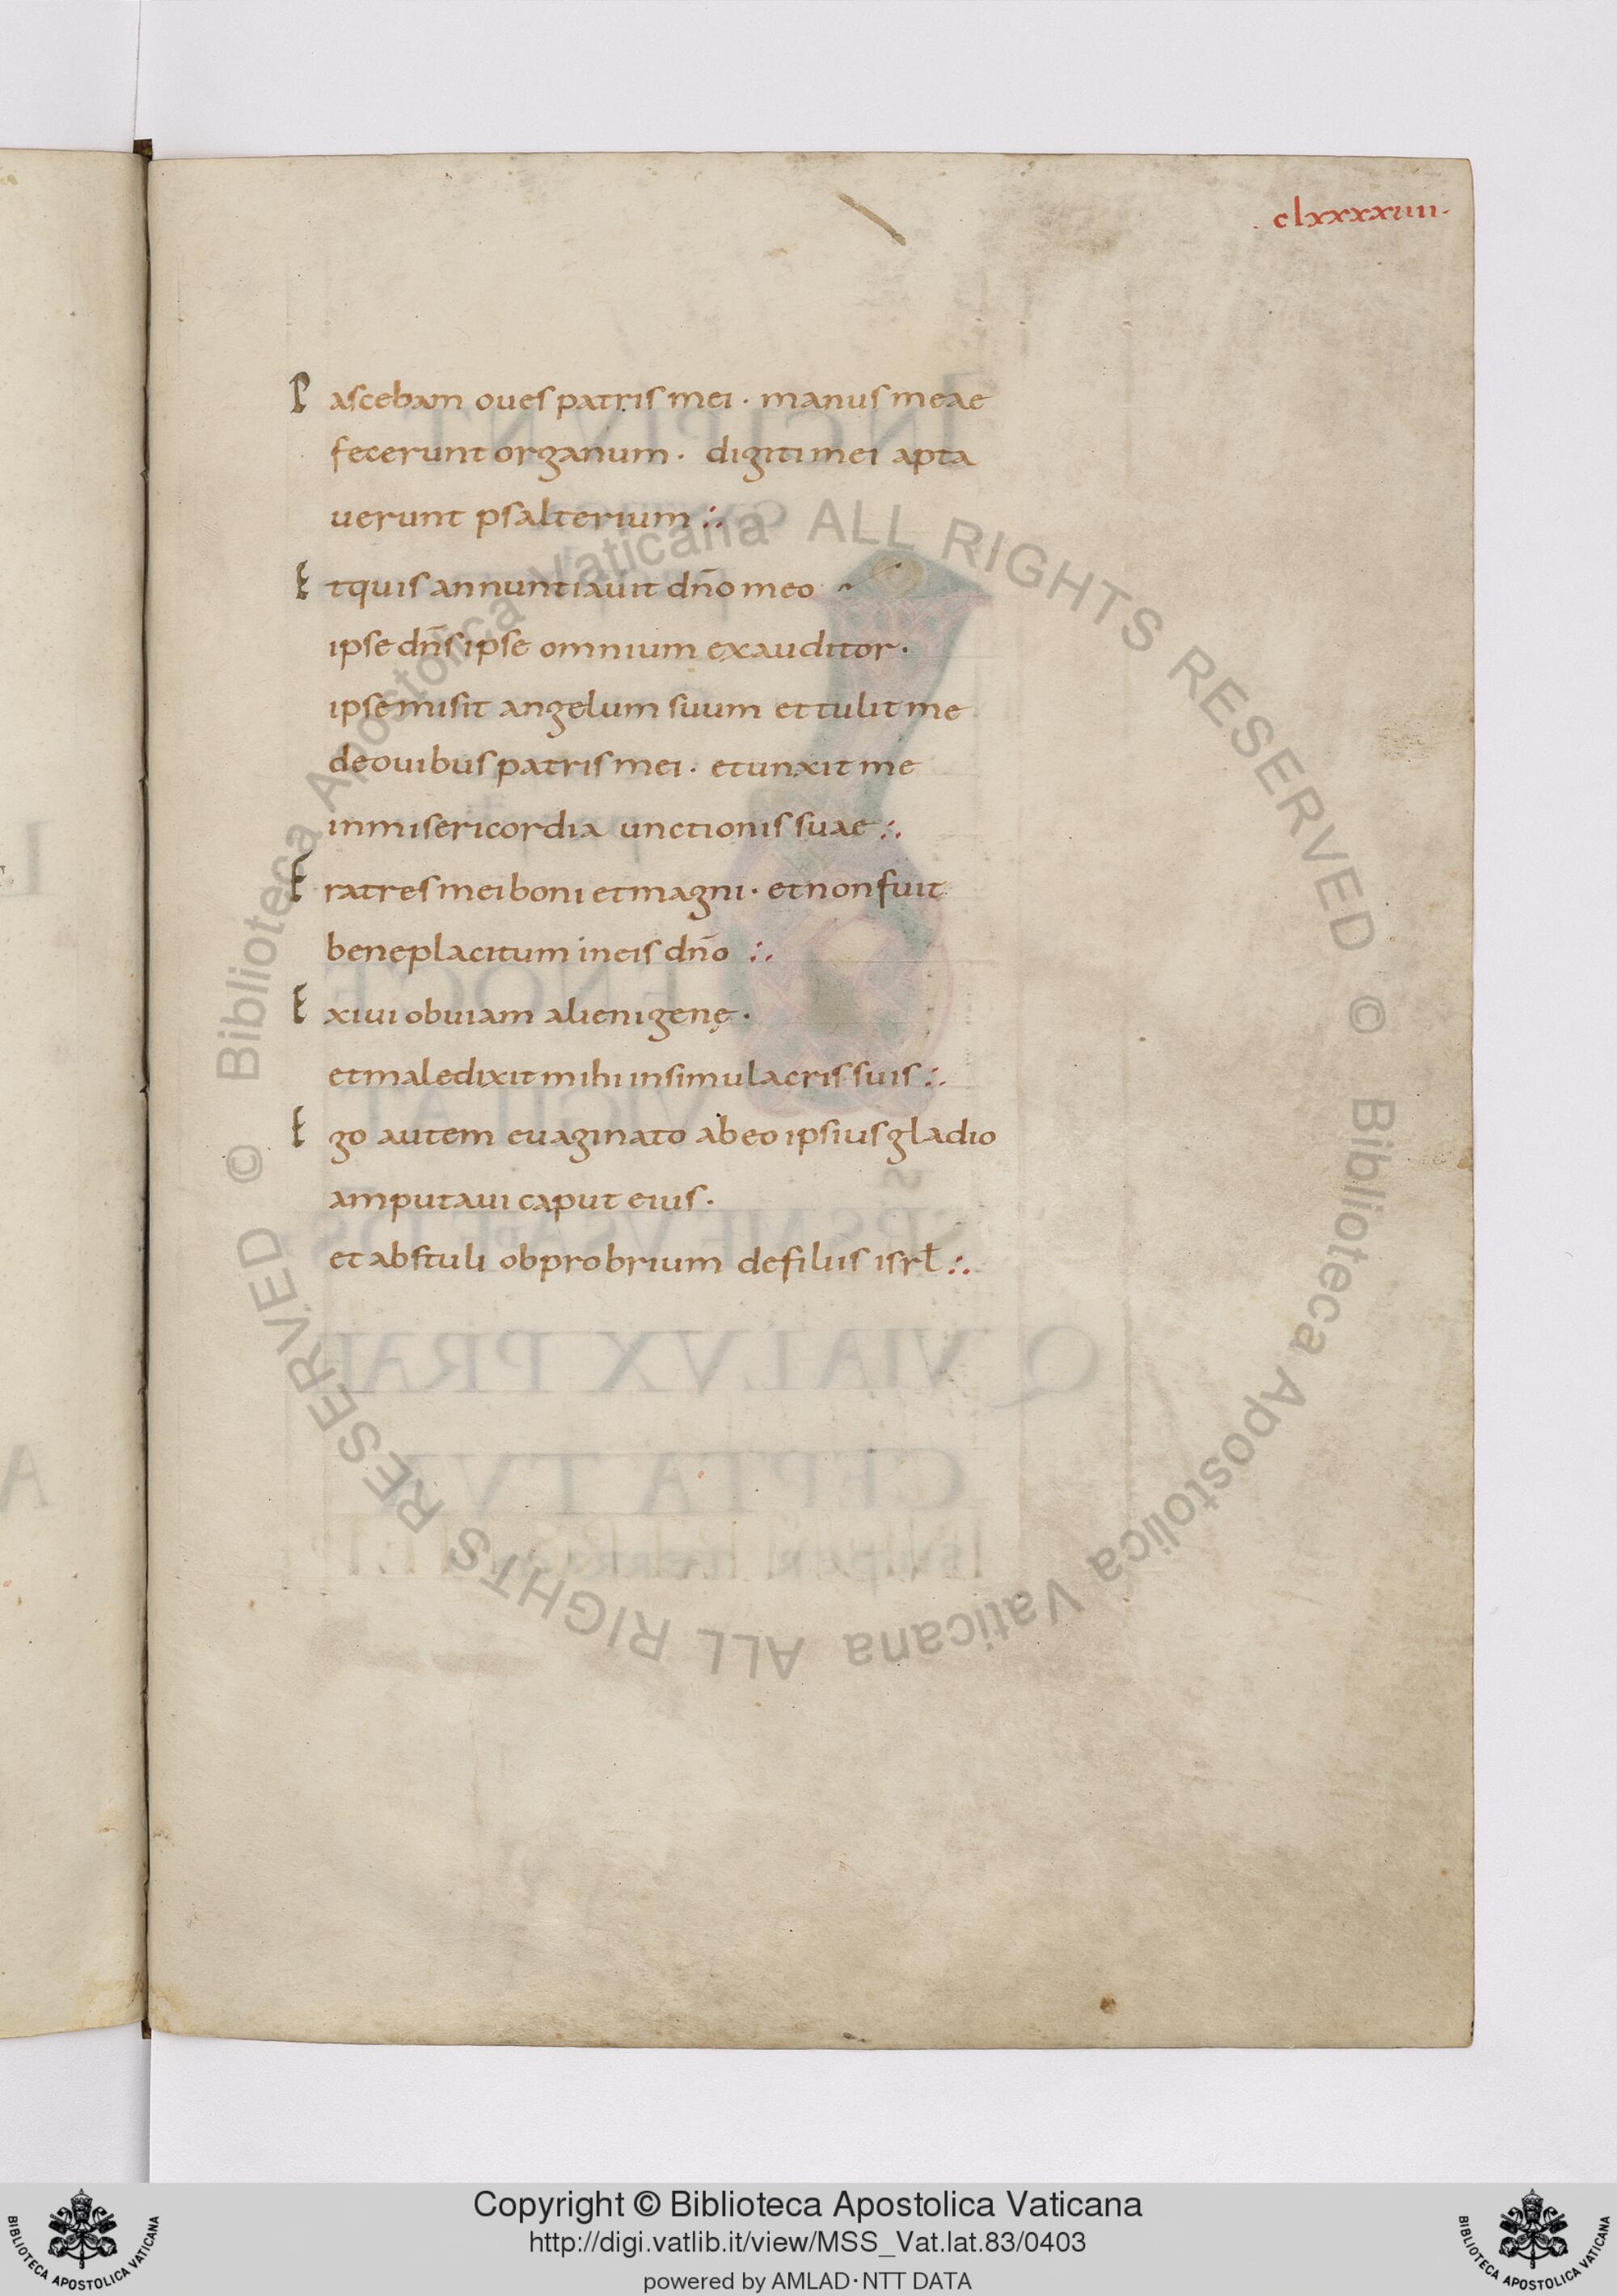 . clxxxxuiiii.
Pascebam oues patris mei · manus meae
fecerunt organum · digiti mei apta
uerunt psalterium :·
Et quis annuntiauit dño meo
ipse dñs ipse omnium exauditor ·
ipse misit angelum suum et tulit me
de ouibus patris mei · et unxit me
in misericordia unctionis suae :·
Fratres mei boni et magni · et non fuit
beneplacitum in eis dño :·
Exiui obuiam alienigenę ·
et maledixit mihi in simulacris suis :·
Ego autem euaginato ab eo ipsius gladio
amputaui caput eius ·
et abstuli obprobrium de filiis isrł :·
© Biblioteca Apostolica Vaticana ALL RIGHTS RESERVED
© Biblioteca Apostolica Vaticana ALL RIGHTS RESERVED
BIBLIOTECA APOSTOLICA VATICANA
Copyright © Biblioteca Apostolica Vaticana
http://digi.vatlib.it/view/MSS_Vat.lat.83/0403
powered by AMLAD · NTT DATA
BIBLIOTECA APOSTOLICA VATICANA